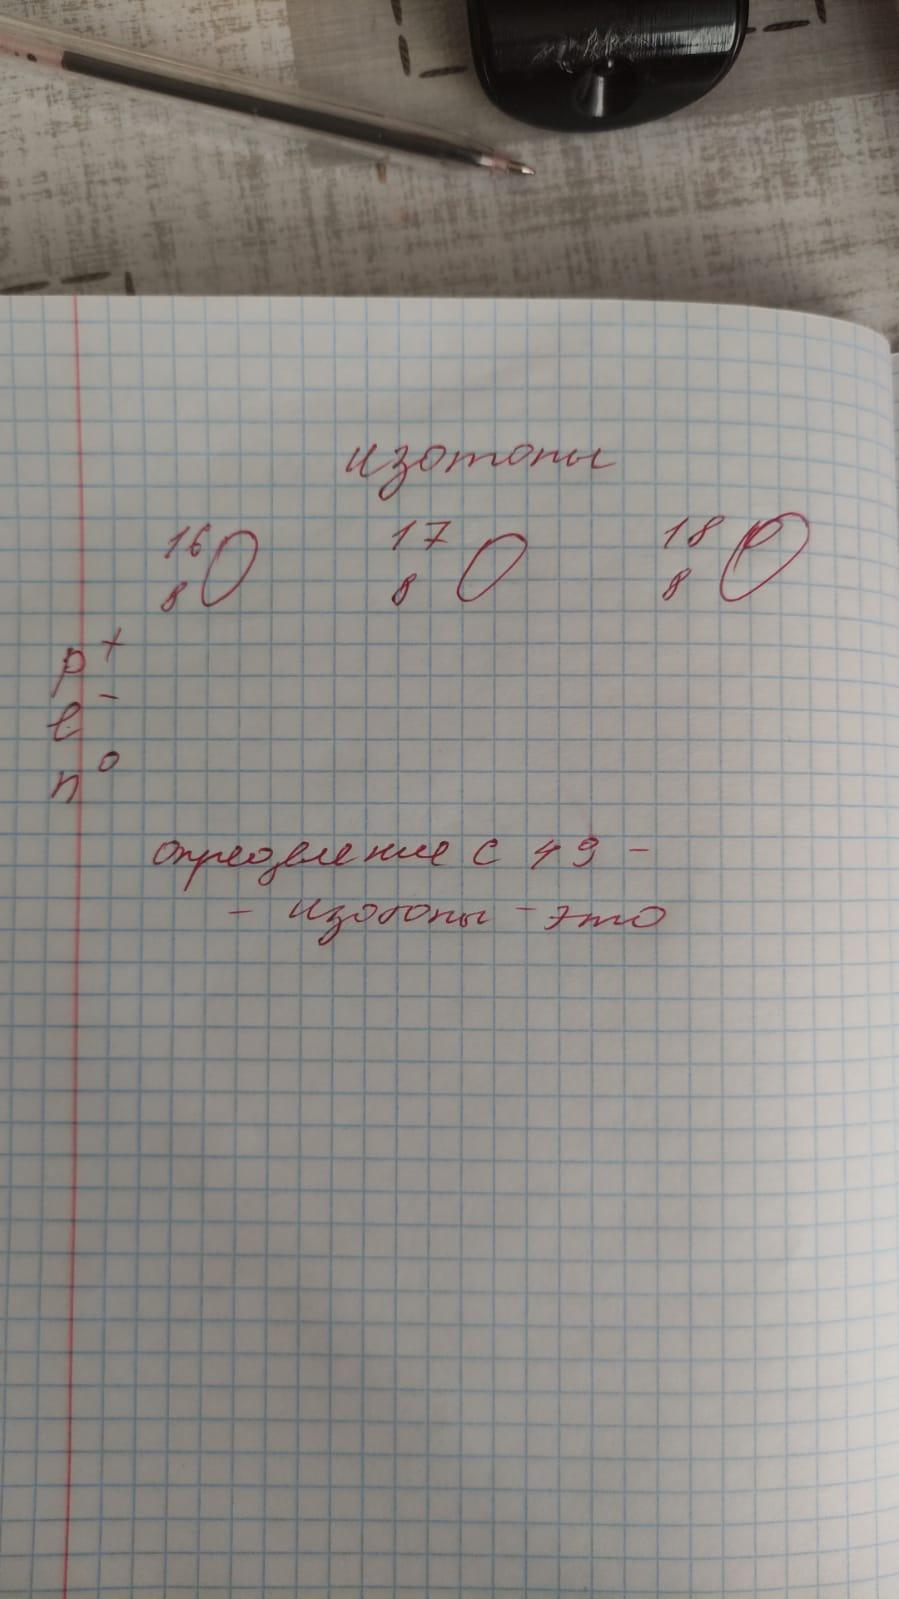 изотопы
16 O 17 O 18 O
8 8 8
p +
e -
n 0
Определение с 49 -
- изотопы - это